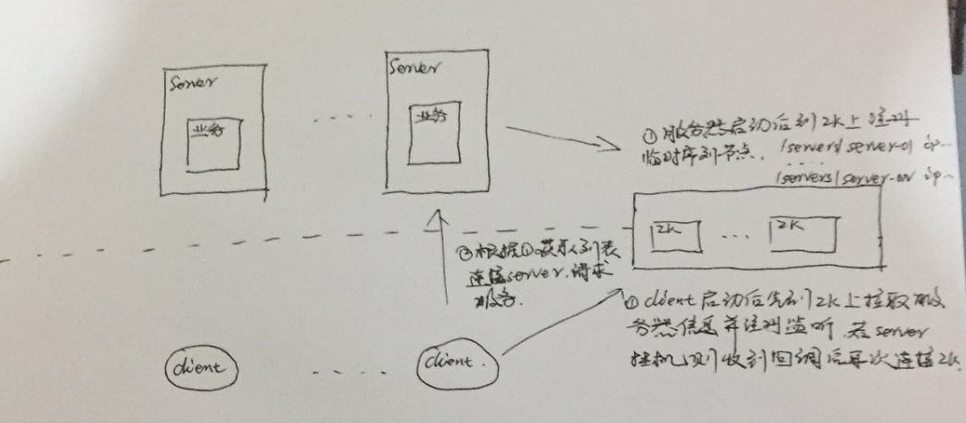 Server
业务
Server
业务
① 服务器启动后到ZK上注册
临时序列节点. /servers/server-01 ip...
......
/servers/server-0N ip...
ZK ... ZK
② 根据①获取列表
连接server.请求
服务.
① client启动后先到ZK上拉取服
务器信息并注册监听.若server
挂机,则收到回调后再次连接ZK.
client
client.